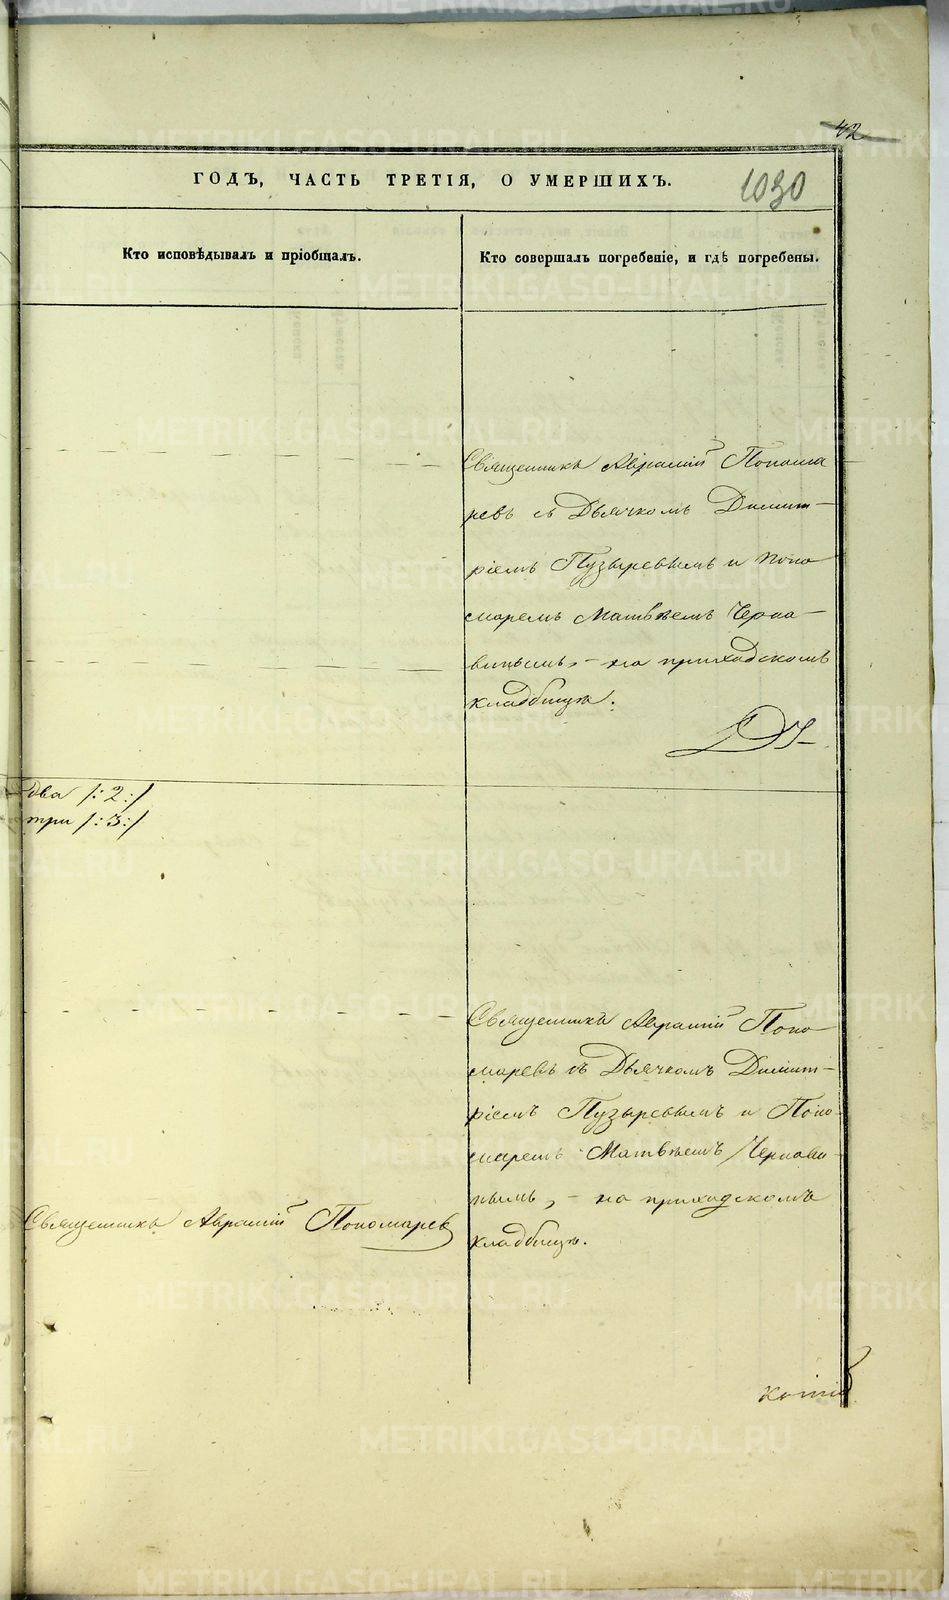 42
ГОДЪ, ЧАСТЬ ТРЕТІЯ, О УМЕРШИХЪ.
1030
Кто исповѣдывалъ и пріобщалъ.
Кто совершалъ погребеніе, и гдѣ погребены.
Священникъ Авраамій Понома
ревъ съ Дьячкомъ Димит-
ріемъ Пузыревымъ и Поно
маремъ Матвѣемъ Черна-
винымъ, - на приходскомъ
кладбищѣ.
два /:2:/
три /:3:/
Священникъ Авраамій Поно
маревъ съ Дьячкомъ Димит-
ріемъ Пузыревымъ и Поно-
маремъ Матвѣемъ Чернави-
нымъ, - на приходскомъ
кладбищѣ.
Священникъ Авраамій Пономаревъ
METRIKI.GASO-URAL.RU